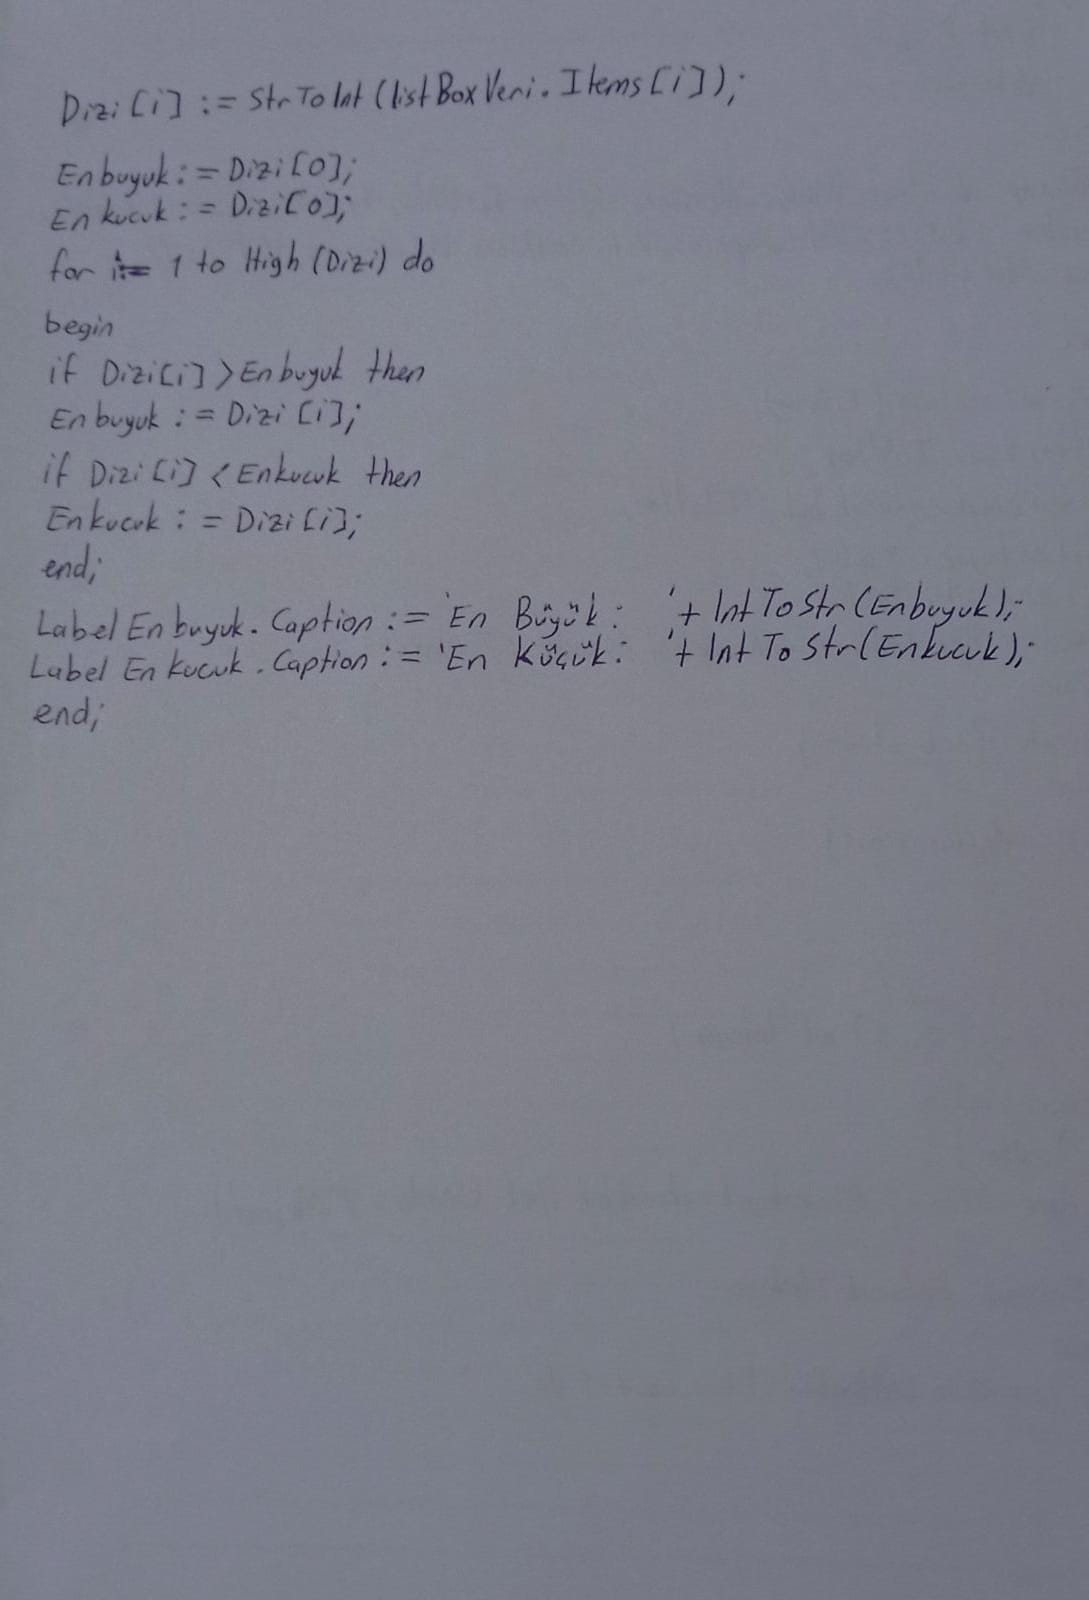 Dizi[i] := StrToInt(listBoxVeri.Items[i]);
Enbuyuk := Dizi[0];
Enkucuk := Dizi[0];
for i:= 1 to High(Dizi) do
begin
if Dizi[i] > Enbuyuk then
Enbuyuk := Dizi[i];
if Dizi[i] < Enkucuk then
Enkucuk := Dizi[i];
end;
LabelEnbuyuk.Caption := 'En Büyük: '+ IntToStr(Enbuyuk);
LabelEnkucuk.Caption := 'En Küçük: '+ IntToStr(Enkucuk);
end;